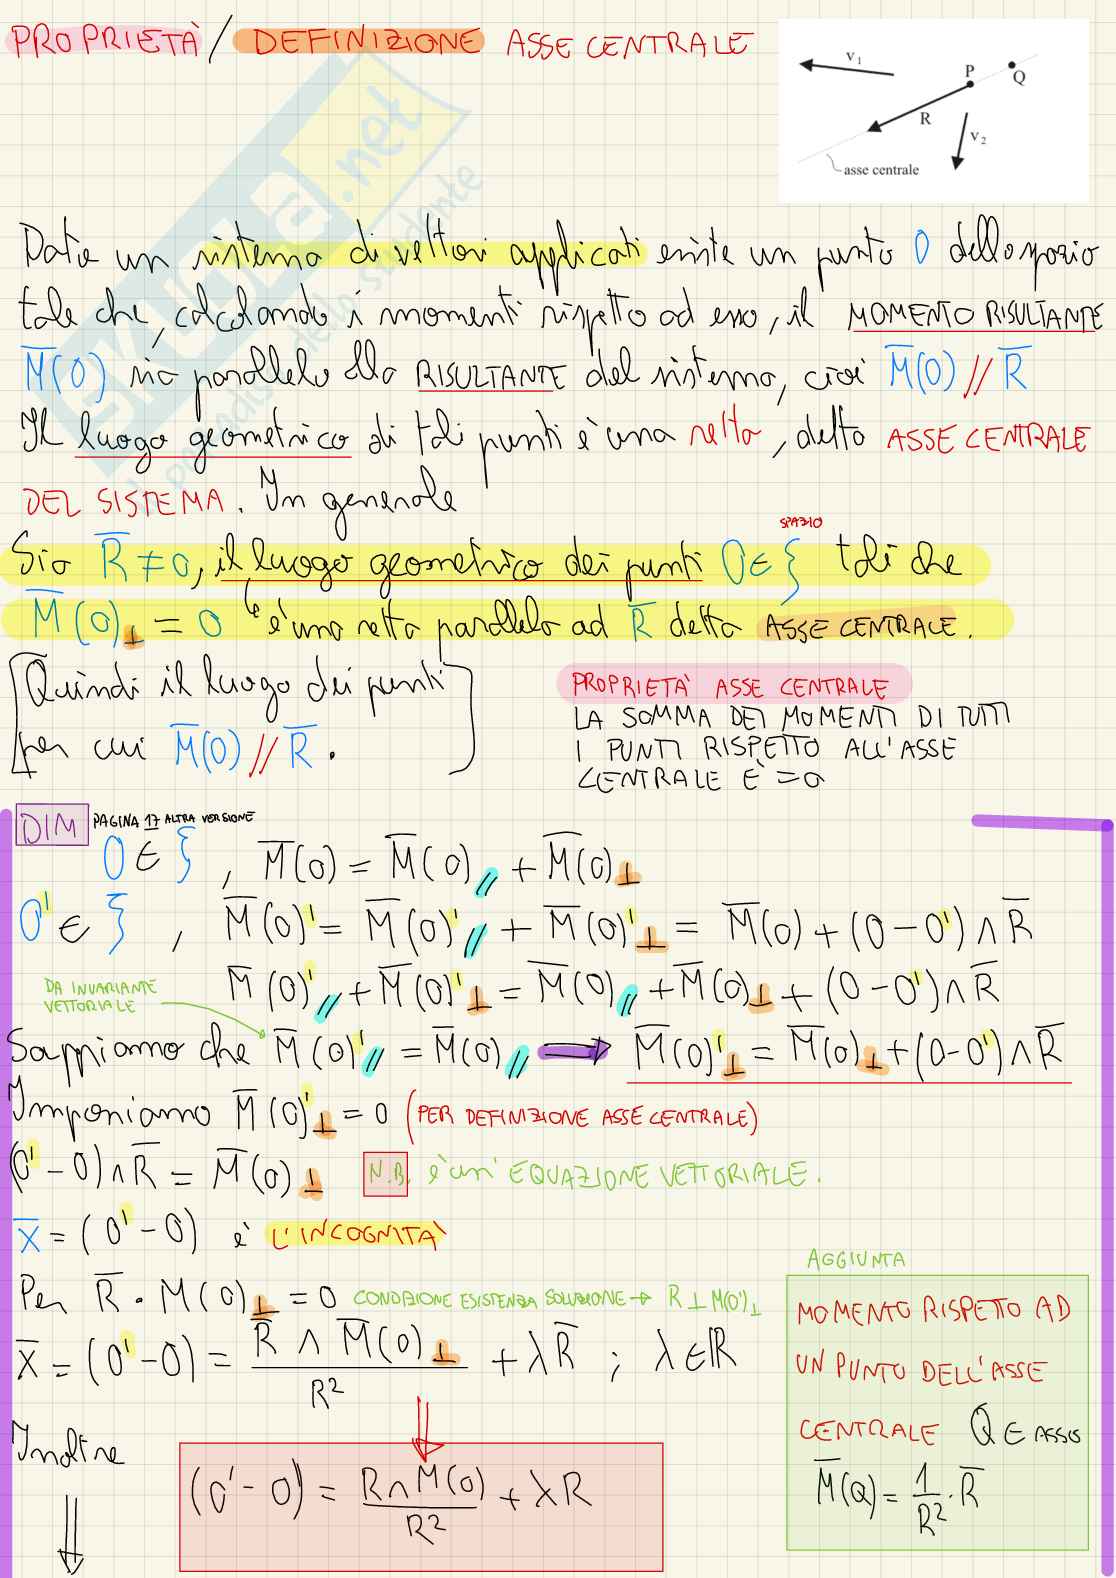 PROPRIETÀ / DEFINIZIONE ASSE CENTRALE
v₁
P
Q
R
v₂
asse centrale
Dato un sistema di vettori applicati esiste un punto O dello spazio
tale che, calcolando i momenti rispetto ad esso, il MOMENTO RISULTANTE
M̅(O) sia parallelo alla RISULTANTE del sistema, cioè M̅(O) // R̅
Il luogo geometrico di tali punti è una retta, detta ASSE CENTRALE
DEL SISTEMA. In generale
SPAZIO
Sia R̅ ≠ 0, il luogo geometrico dei punti O ∈ ξ tali che
M̅(O)⊥ = 0 è una retta parallela ad R̅ detta ASSE CENTRALE.
[Quindi il luogo dei punti
per cui M̅(O) // R̅.]
PROPRIETÀ ASSE CENTRALE
LA SOMMA DEI MOMENTI DI TUTTI
I PUNTI RISPETTO ALL'ASSE
CENTRALE È = 0
DIM PAGINA 17 ALTRA VERSIONE
O ∈ ξ, M̅(O) = M̅(O)// + M̅(O)⊥
O' ∈ ξ, M̅(O)' = M̅(O)'// + M̅(O)'⊥ = M̅(O) + (O-O') ∧ R̅
M̅(O)'// + M̅(O)'⊥ = M̅(O)// + M̅(O)⊥ + (O-O') ∧ R̅
DA INVARIANTE
VETTORIALE
Sappiamo che M̅(O)'// = M̅(O)// → M̅(O)'⊥ = M̅(O)⊥ + (O-O') ∧ R̅
Imponiamo M̅(O)'⊥ = 0 (PER DEFINIZIONE ASSE CENTRALE)
(O'-O) ∧ R̅ = M̅(O)⊥ N.B. è un' EQUAZIONE VETTORIALE.
x̅ = (O'-O) è L'INCOGNITA
Per R̅ · M(O)⊥ = 0 CONDIZIONE ESISTENZA SOLUZIONE → R ⊥ M(O')⊥
x̅ = (O'-O) = R̅ ∧ M̅(O)⊥ / R² + λR̅ ; λ ∈ ℝ
Inoltre
(O'-O) = R∧M(O) / R² + λR
AGGIUNTA
MOMENTO RISPETTO AD
UN PUNTO DELL'ASSE
CENTRALE Q ∈ ASSE
M̅(Q) = 1/R² · R̅
skuola.net
il paradiso dello studente